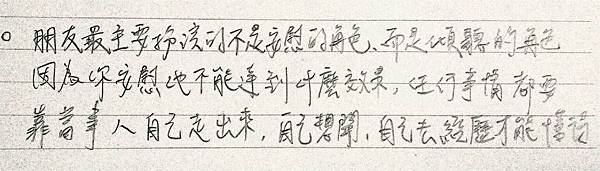 。朋友最主要扮演的不是安慰的角色、而是傾聽的角色
因為你安慰也不能達到什麼效果,任何事情都要
靠當事人自己走出來,自己想開,自己去經歷才能懂得